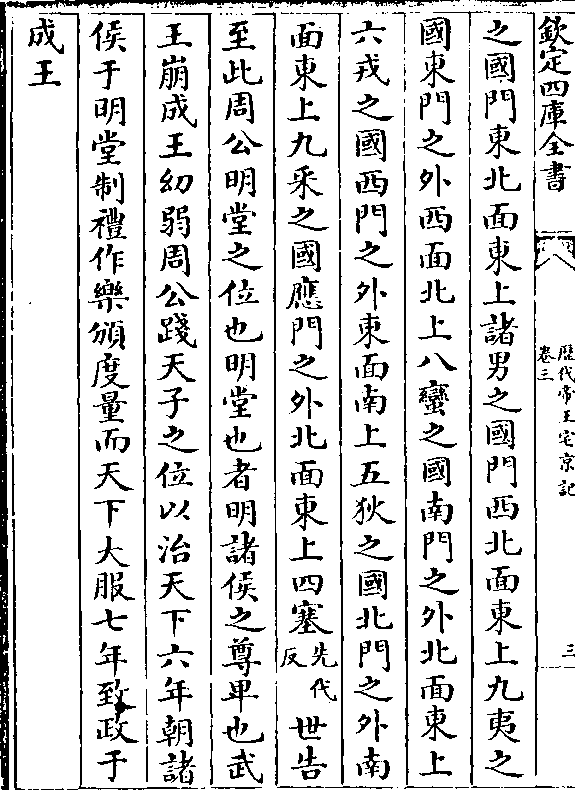 欽定四庫全書
歷代帝王宅京記
卷三
三
之國門東北面東上諸男之國門西北面東上九夷之
國東門之外西面北上八蠻之國南門之外北面東上
六戎之國西門之外東面南上五狄之國北門之外南
面東上九采之國應門之外北面東上四塞先代反世告
至此周公明堂之位也明堂也者明諸侯之尊卑也武
王崩成王幼弱周公踐天子之位以治天下六年朝諸
侯于明堂制禮作樂頒度量而天下大服七年致政于
成王